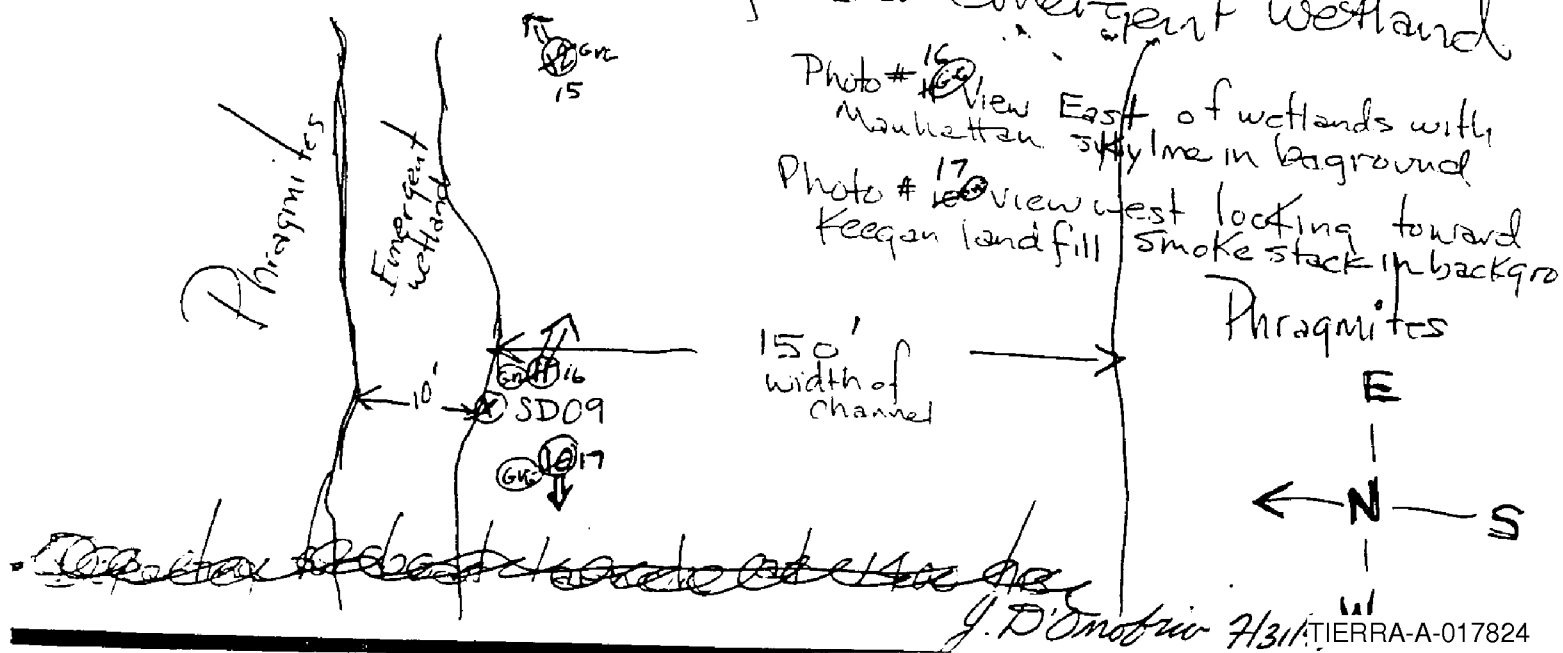 Emergent wetland
Photo # 16 View East of wetlands with
Manhattan skyline in baground
Photo # 17 view west looking toward
Keegan landfill smoke stack in backgro
Phragmites
Phragmites
Emergent
wetland
15
150'
width of
channel
16
10'
SD09
17
E
N S
W
J. D'Onofrio 7/31/
TIERRA-A-017824